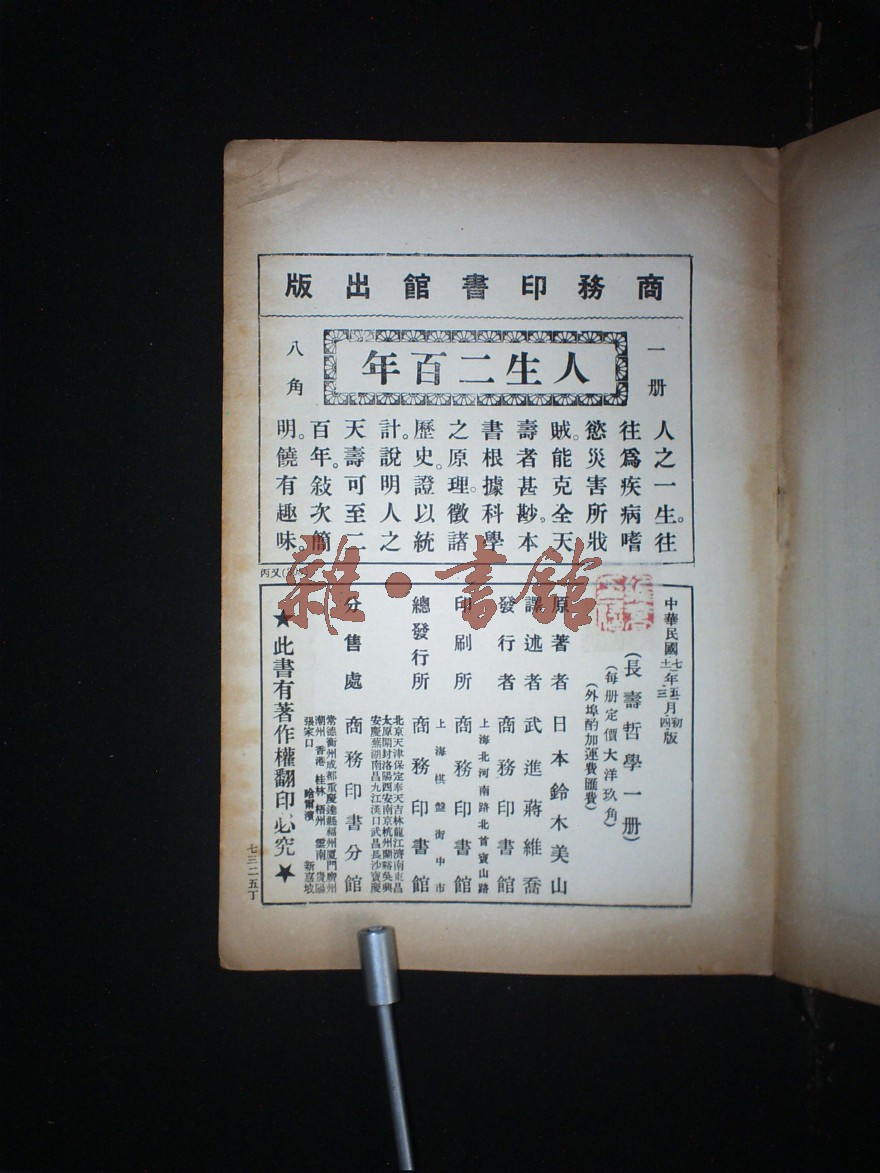 商務印書館出版
一册
人生二百年
八角
人之一生。往
往爲疾病嗜
慾災害所戕
賊。能克全天
壽者甚尠。本
書根據科學
之原理。徵諸
歷史。證以統
計。說明人之
天壽可至二
百年。敍次簡
明。饒有趣味。
中華民國
七年五月初版
(長壽哲學一册)
(每册定價大洋玖角)
(外埠酌加運費匯費)
原著者 日本鈴木美山
譯述者 武進蔣維喬
發行者 商務印書館
上海北河南路北首寶山路
印刷所 商務印書館
上海棋盤街中市
總發行所 商務印書館
北京天津保定奉天吉林龍江濟南東昌
太原開封洛陽西安南京杭州蘭谿吳興
安慶蕪湖南昌九江漢口武昌長沙寶慶
分售處 商務印書分館
常德衡州成都重慶達縣福州厦門廣州
潮州 香港 桂林 梧州 雲南 貴陽
張家口 哈爾濱 新嘉坡
★此書有著作權翻印必究★
七三二五丁
雜·書館